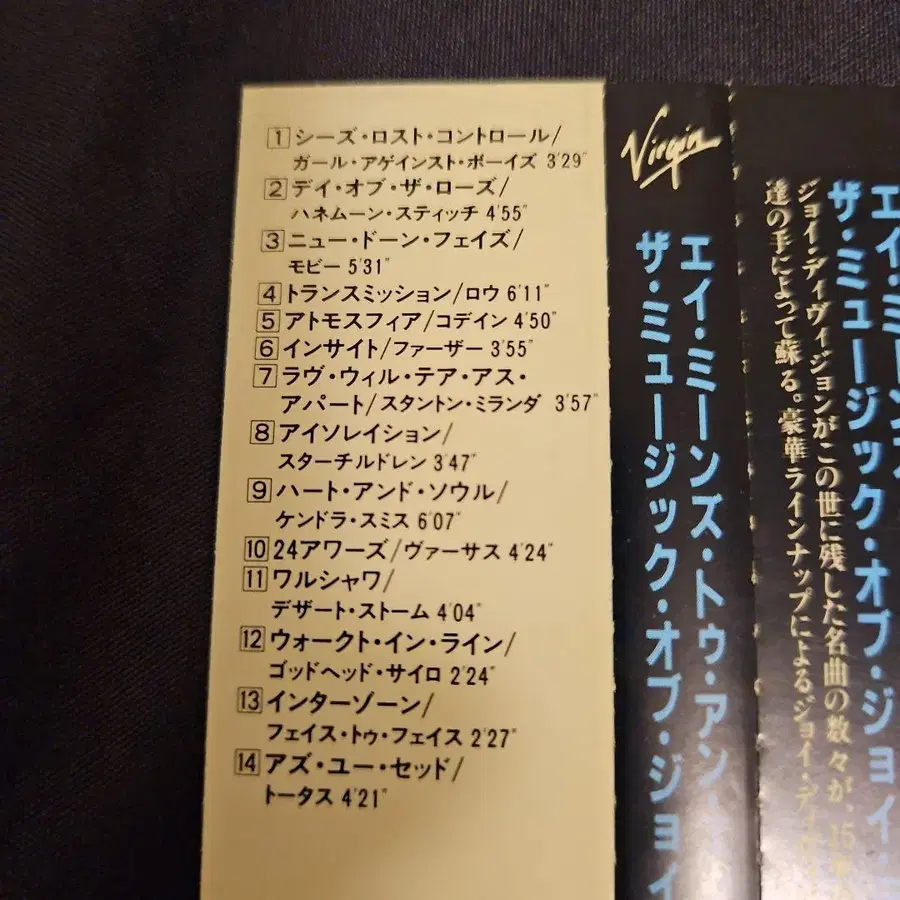 1 シーズ・ロスト・コントロール/
ガール・アゲインスト・ボーイズ 3'29"
2 デイ・オブ・ザ・ローズ/
ハネムーン・スティッチ 4'55"
3 ニュー・ドーン・フェイズ/
モビー 5'31"
4 トランスミッション/ロウ 6'11"
5 アトモスフィア/コデイン 4'50"
6 インサイト/ファーザー 3'55"
7 ラヴ・ウィル・テア・アス・
アパート/スタントン・ミランダ 3'57"
8 アイソレイション/
スターチルドレン 3'47"
9 ハート・アンド・ソウル/
ケンドラ・スミス 6'07"
10 24アワーズ/ヴァーサス 4'24"
11 ワルシャワ/
デザート・ストーム 4'04"
12 ウォークト・イン・ライン/
ゴッドヘッド・サイロ 2'24"
13 インターゾーン/
フェイス・トゥ・フェイス 2'27"
14 アズ・ユー・セッド/
トータス 4'21"
Virgin
エイ・ミーンズ・トゥ・アン・
ザ・ミュージック・オブ・ジョイ
エイ・ミーンズ
ザ・ミュージック・オブ・ジョイ・
ジョイ・ディヴィジョンがこの世に残した名曲の数々が、15年
達の手によって蘇る。豪華ラインナップによるジョイ・ディ